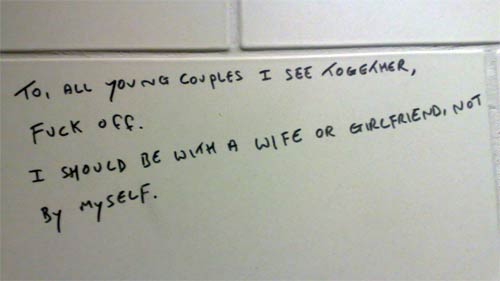 TO, ALL YOUNG COUPLES I SEE TOGETHER,
FUCK OFF.
I SHOULD BE WITH A WIFE OR GIRLFRIEND, NOT
BY MYSELF.